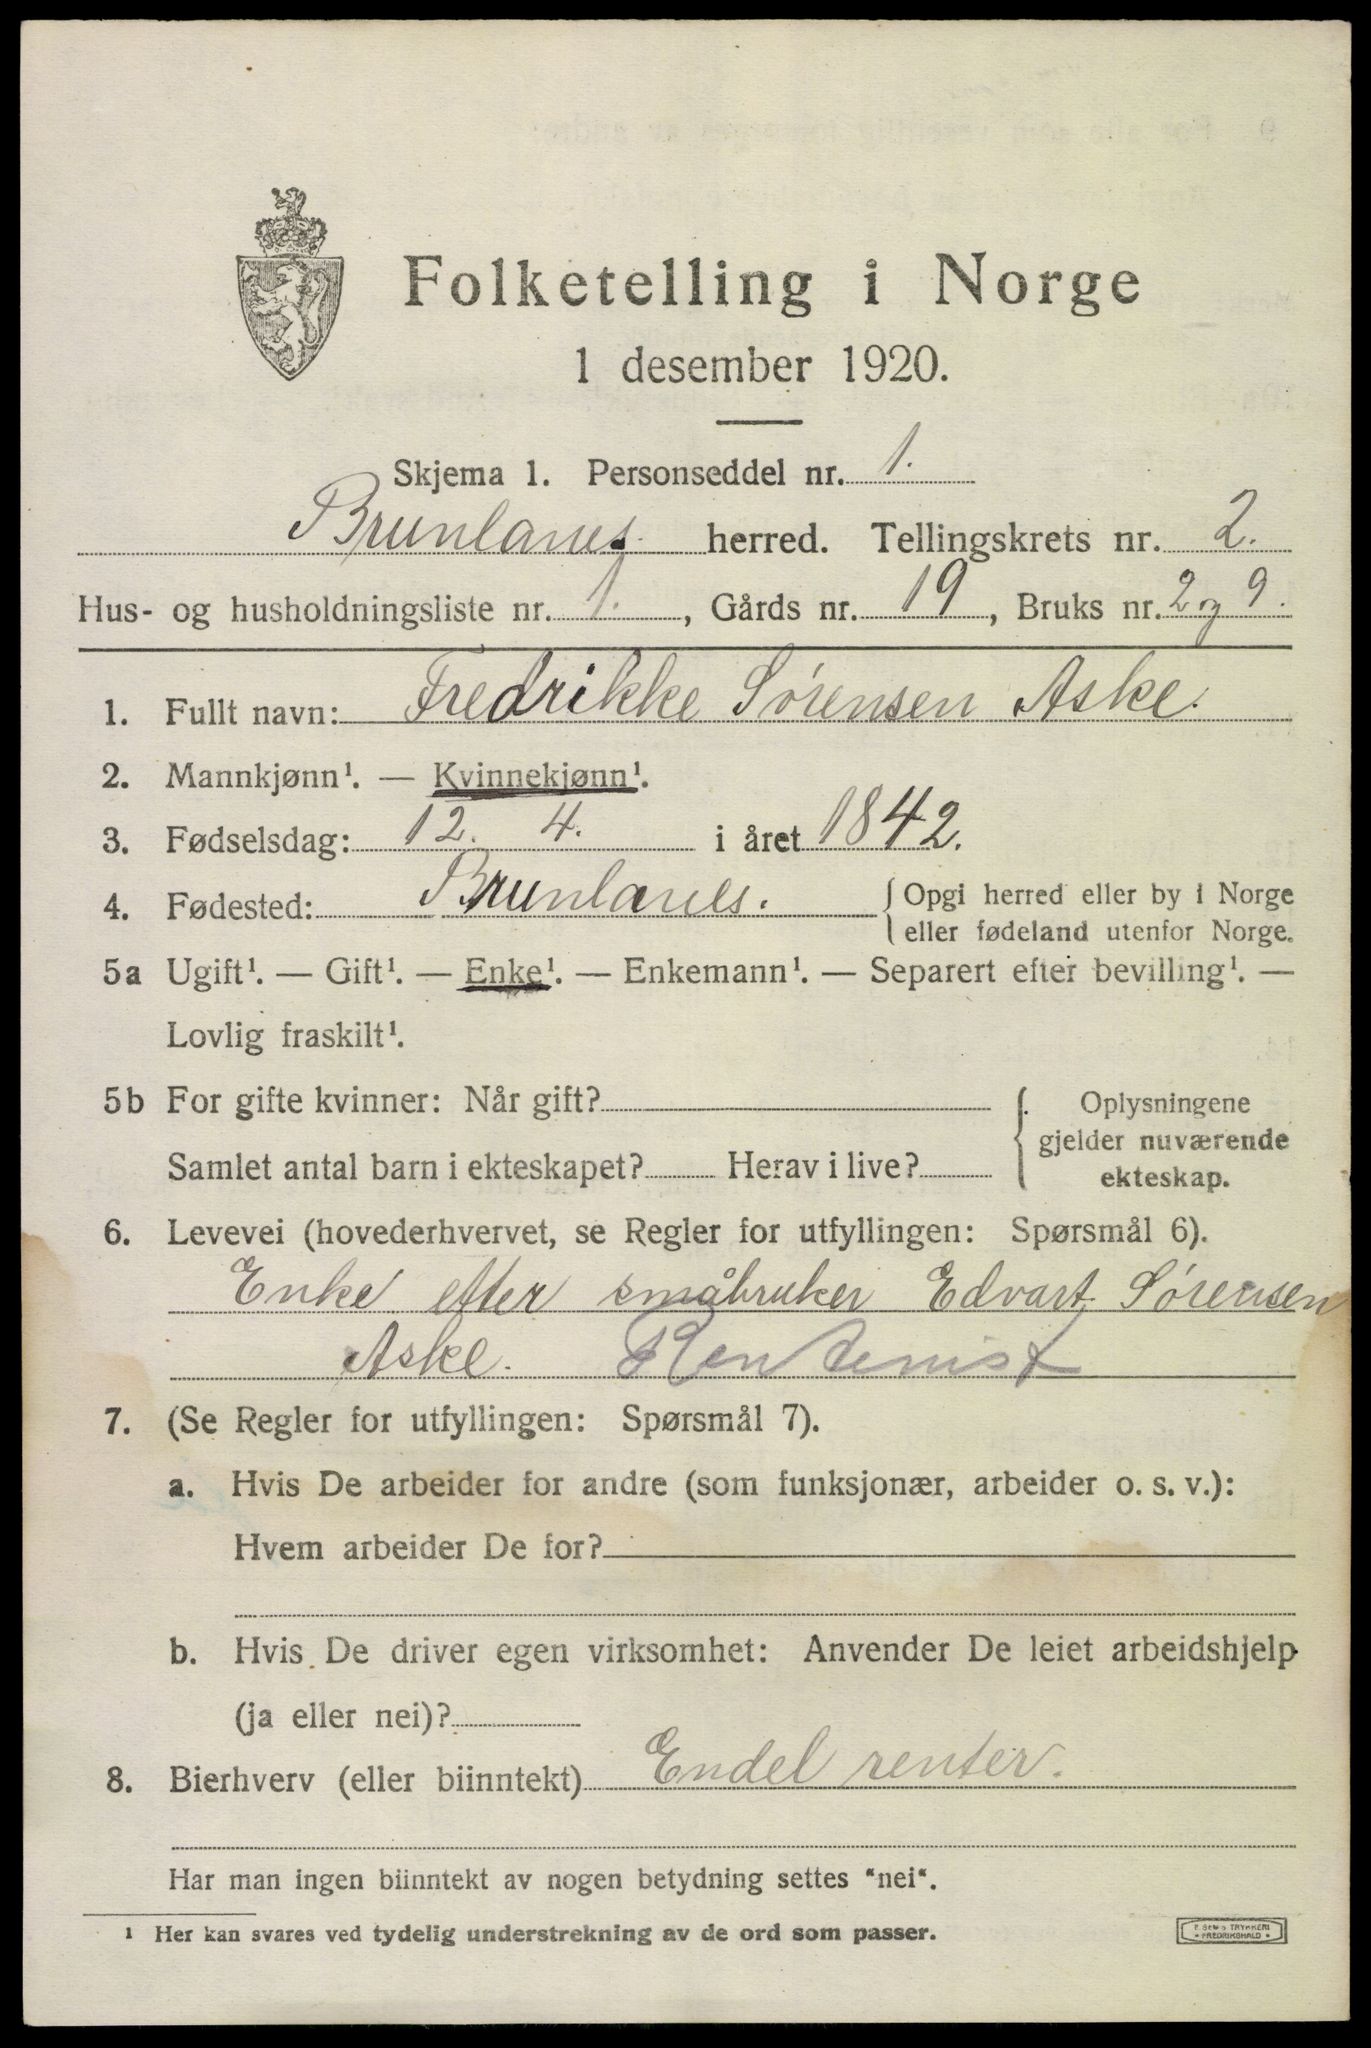 Folketelling i Norge
1 desember 1920.
Skjema 1. Personseddel nr. 1.
Brunlanes herred. Tellingskrets nr. 2.
Hus- og husholdningsliste nr. 1., Gårds nr. 19, Bruks nr. 2 og 9.
1. Fullt navn: Fredrikke Sørensen Aske.
2. Mannkjønn¹. — Kvinnekjønn¹.
3. Fødselsdag: 12. 4. i året 1842.
4. Fødested: Brunlanes. { Opgi herred eller by i Norge
eller fødeland utenfor Norge.
5a Ugift¹. — Gift¹. — Enke¹. — Enkemann¹. — Separert efter bevilling¹. —
Lovlig fraskilt¹.
5b For gifte kvinner: Når gift?
Samlet antal barn i ekteskapet? Herav i live?
{ Oplysningene
gjelder nuværende
ekteskap.
6. Levevei (hovederhvervet, se Regler for utfyllingen: Spørsmål 6).
Enke efter småbruker Edvart Sørensen
Aske. Rentenist
7. (Se Regler for utfyllingen: Spørsmål 7).
a. Hvis De arbeider for andre (som funksjonær, arbeider o. s. v.):
Hvem arbeider De for?
b. Hvis De driver egen virksomhet: Anvender De leiet arbeidshjelp
(ja eller nei)?
8. Bierhverv (eller biinntekt) Endel renter.
Har man ingen biinntekt av nogen betydning settes "nei".
¹ Her kan svares ved tydelig understrekning av de ord som passer.
TRYKKERI
FREDRIKSHALD